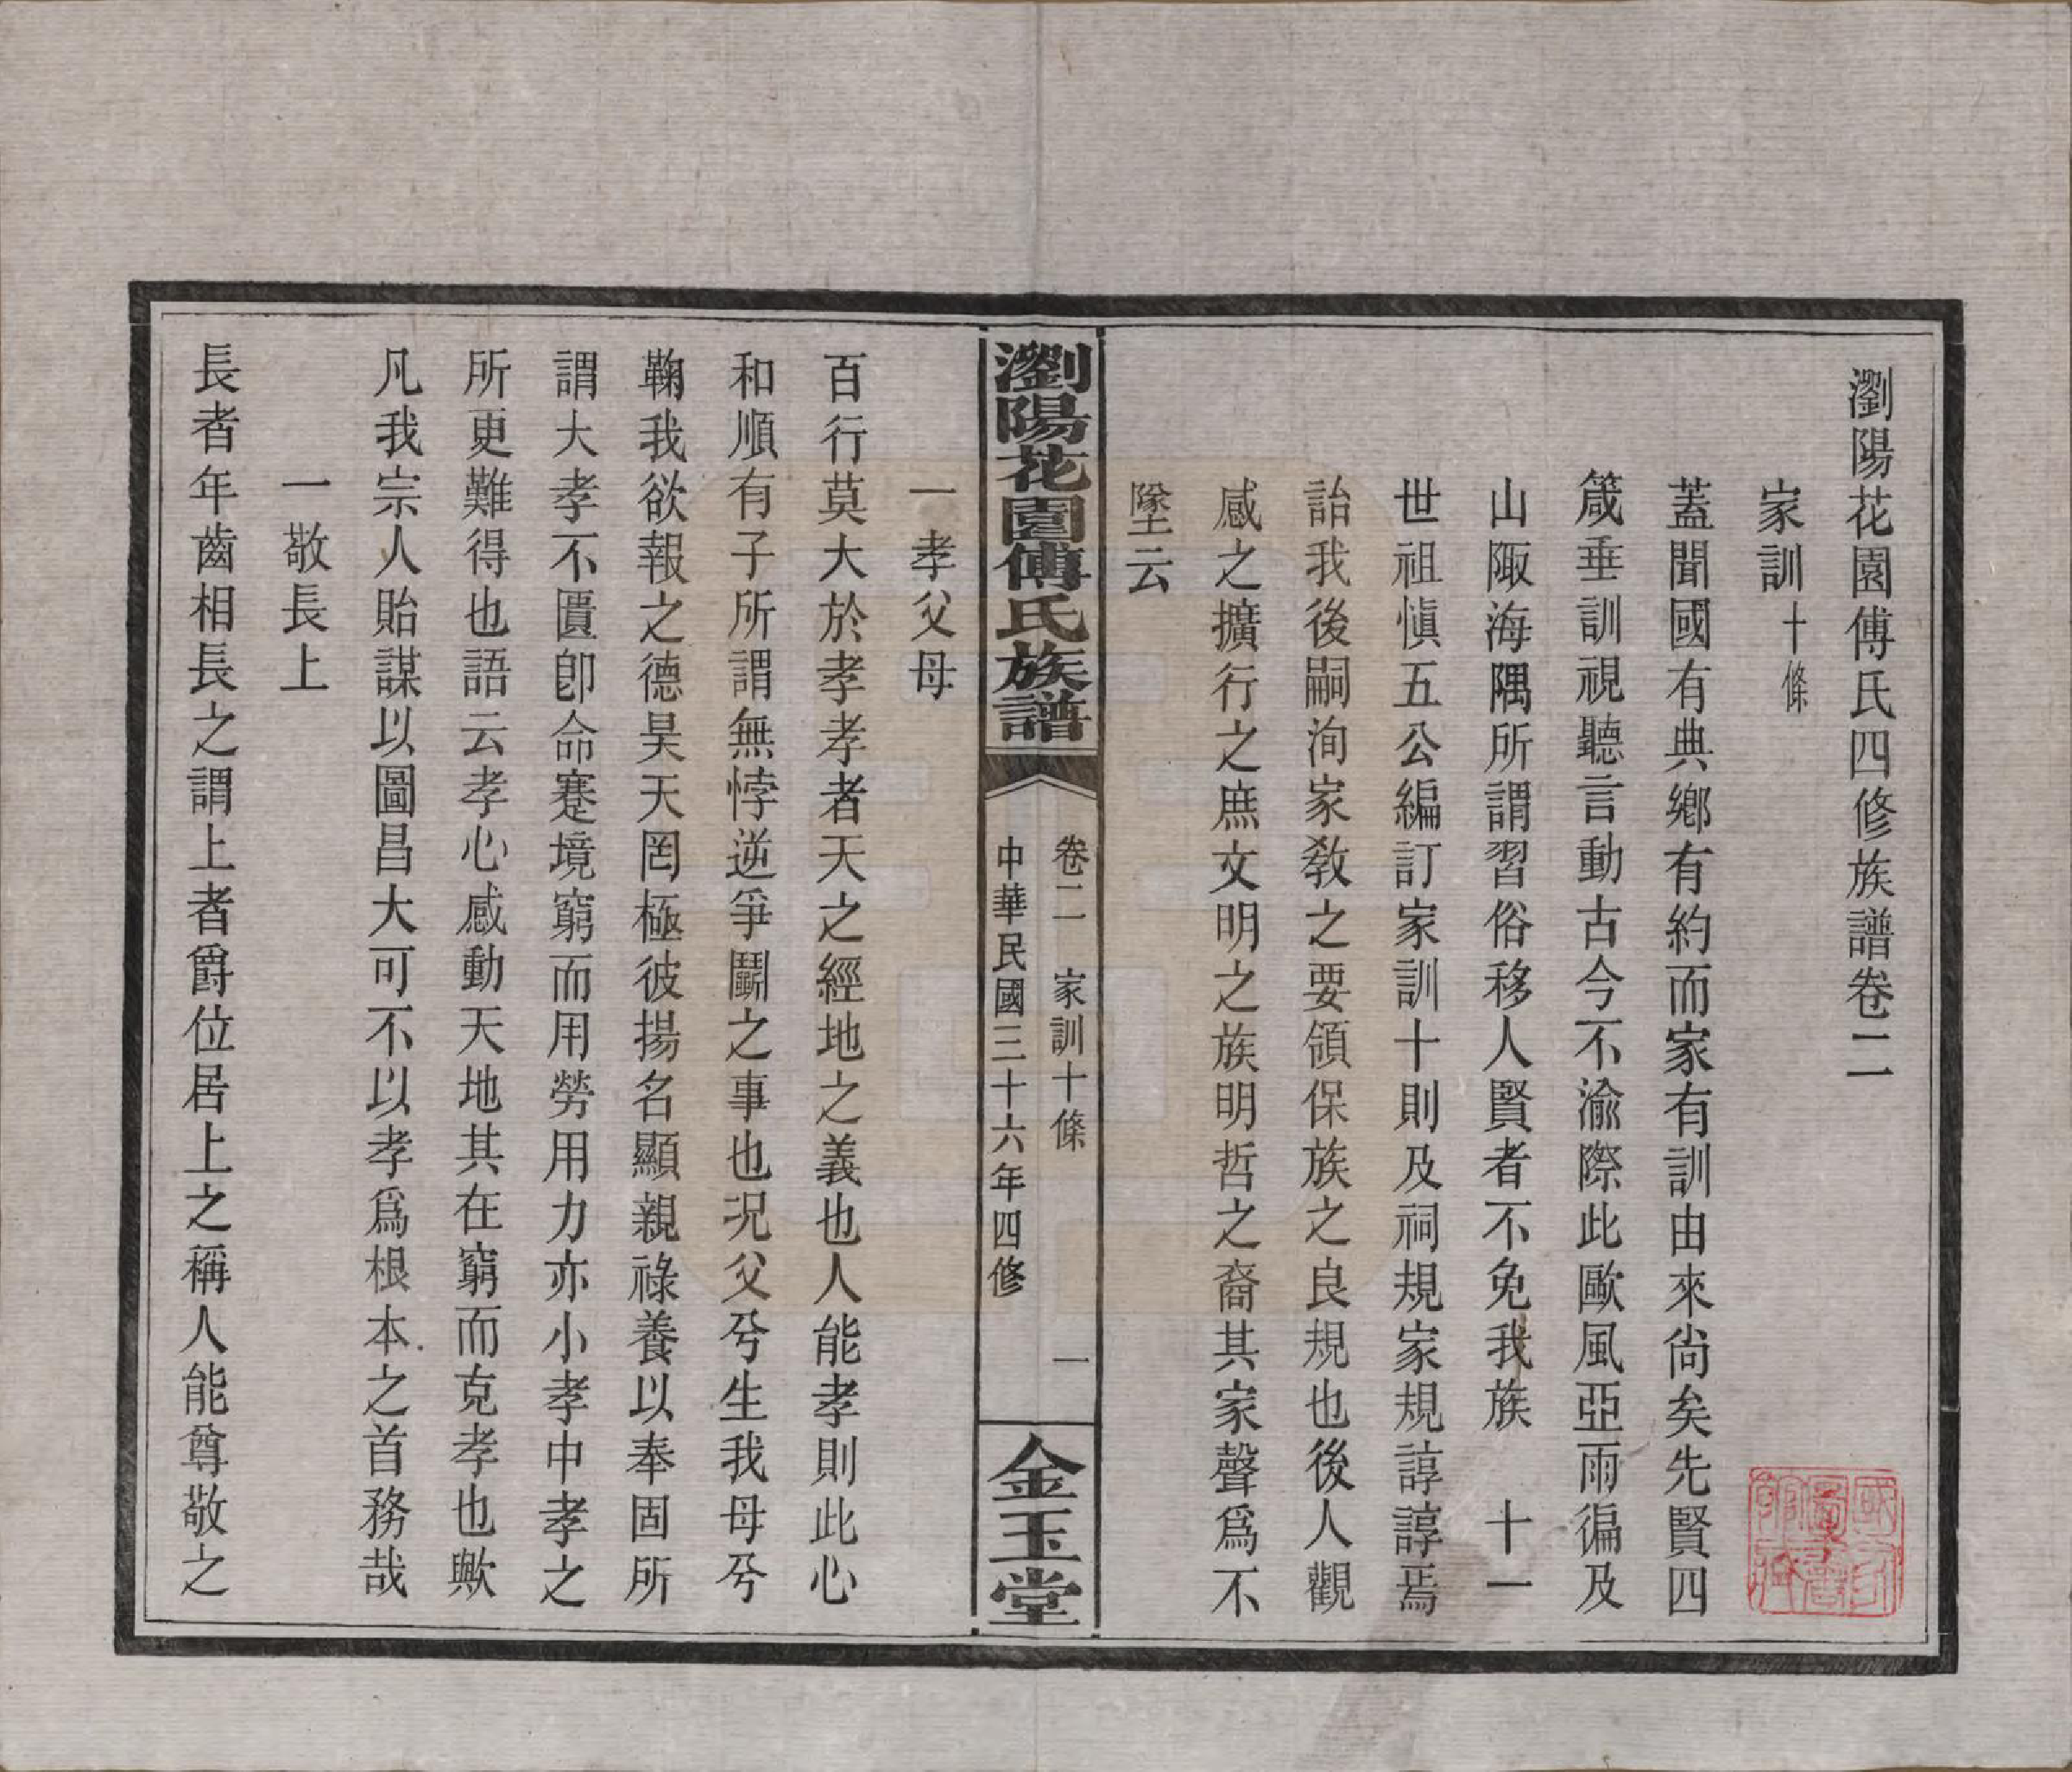 瀏陽花園傅氏四修族譜卷二
家訓十條
蓋聞國有典鄉有約而家有訓由來尙矣先賢四
箴垂訓視聽言動古今不渝際此歐風亞雨徧及
山陬海隅所謂習俗移人賢者不免我族　十一
世祖愼五公編訂家訓十則及祠規家規諄諄焉
詒我後嗣洵家敎之要領保族之良規也後人觀
感之擴行之庶文明之族明哲之裔其家聲爲不
墜云
瀏陽花園傅氏族譜
卷二　家訓十條　一
中華民國三十六年四修
金玉堂
一孝父母
百行莫大於孝孝者天之經地之義也人能孝則此心
和順有子所謂無悖逆爭鬭之事也況父兮生我母兮
鞠我欲報之德昊天罔極彼揚名顯親祿養以奉固所
謂大孝不匱卽命蹇境窮而用勞用力亦小孝中孝之
所更難得也語云孝心感動天地其在窮而克孝也歟
凡我宗人貽謀以圖昌大可不以孝爲根本之首務哉
一敬長上
長者年齒相長之謂上者爵位居上之稱人能尊敬之